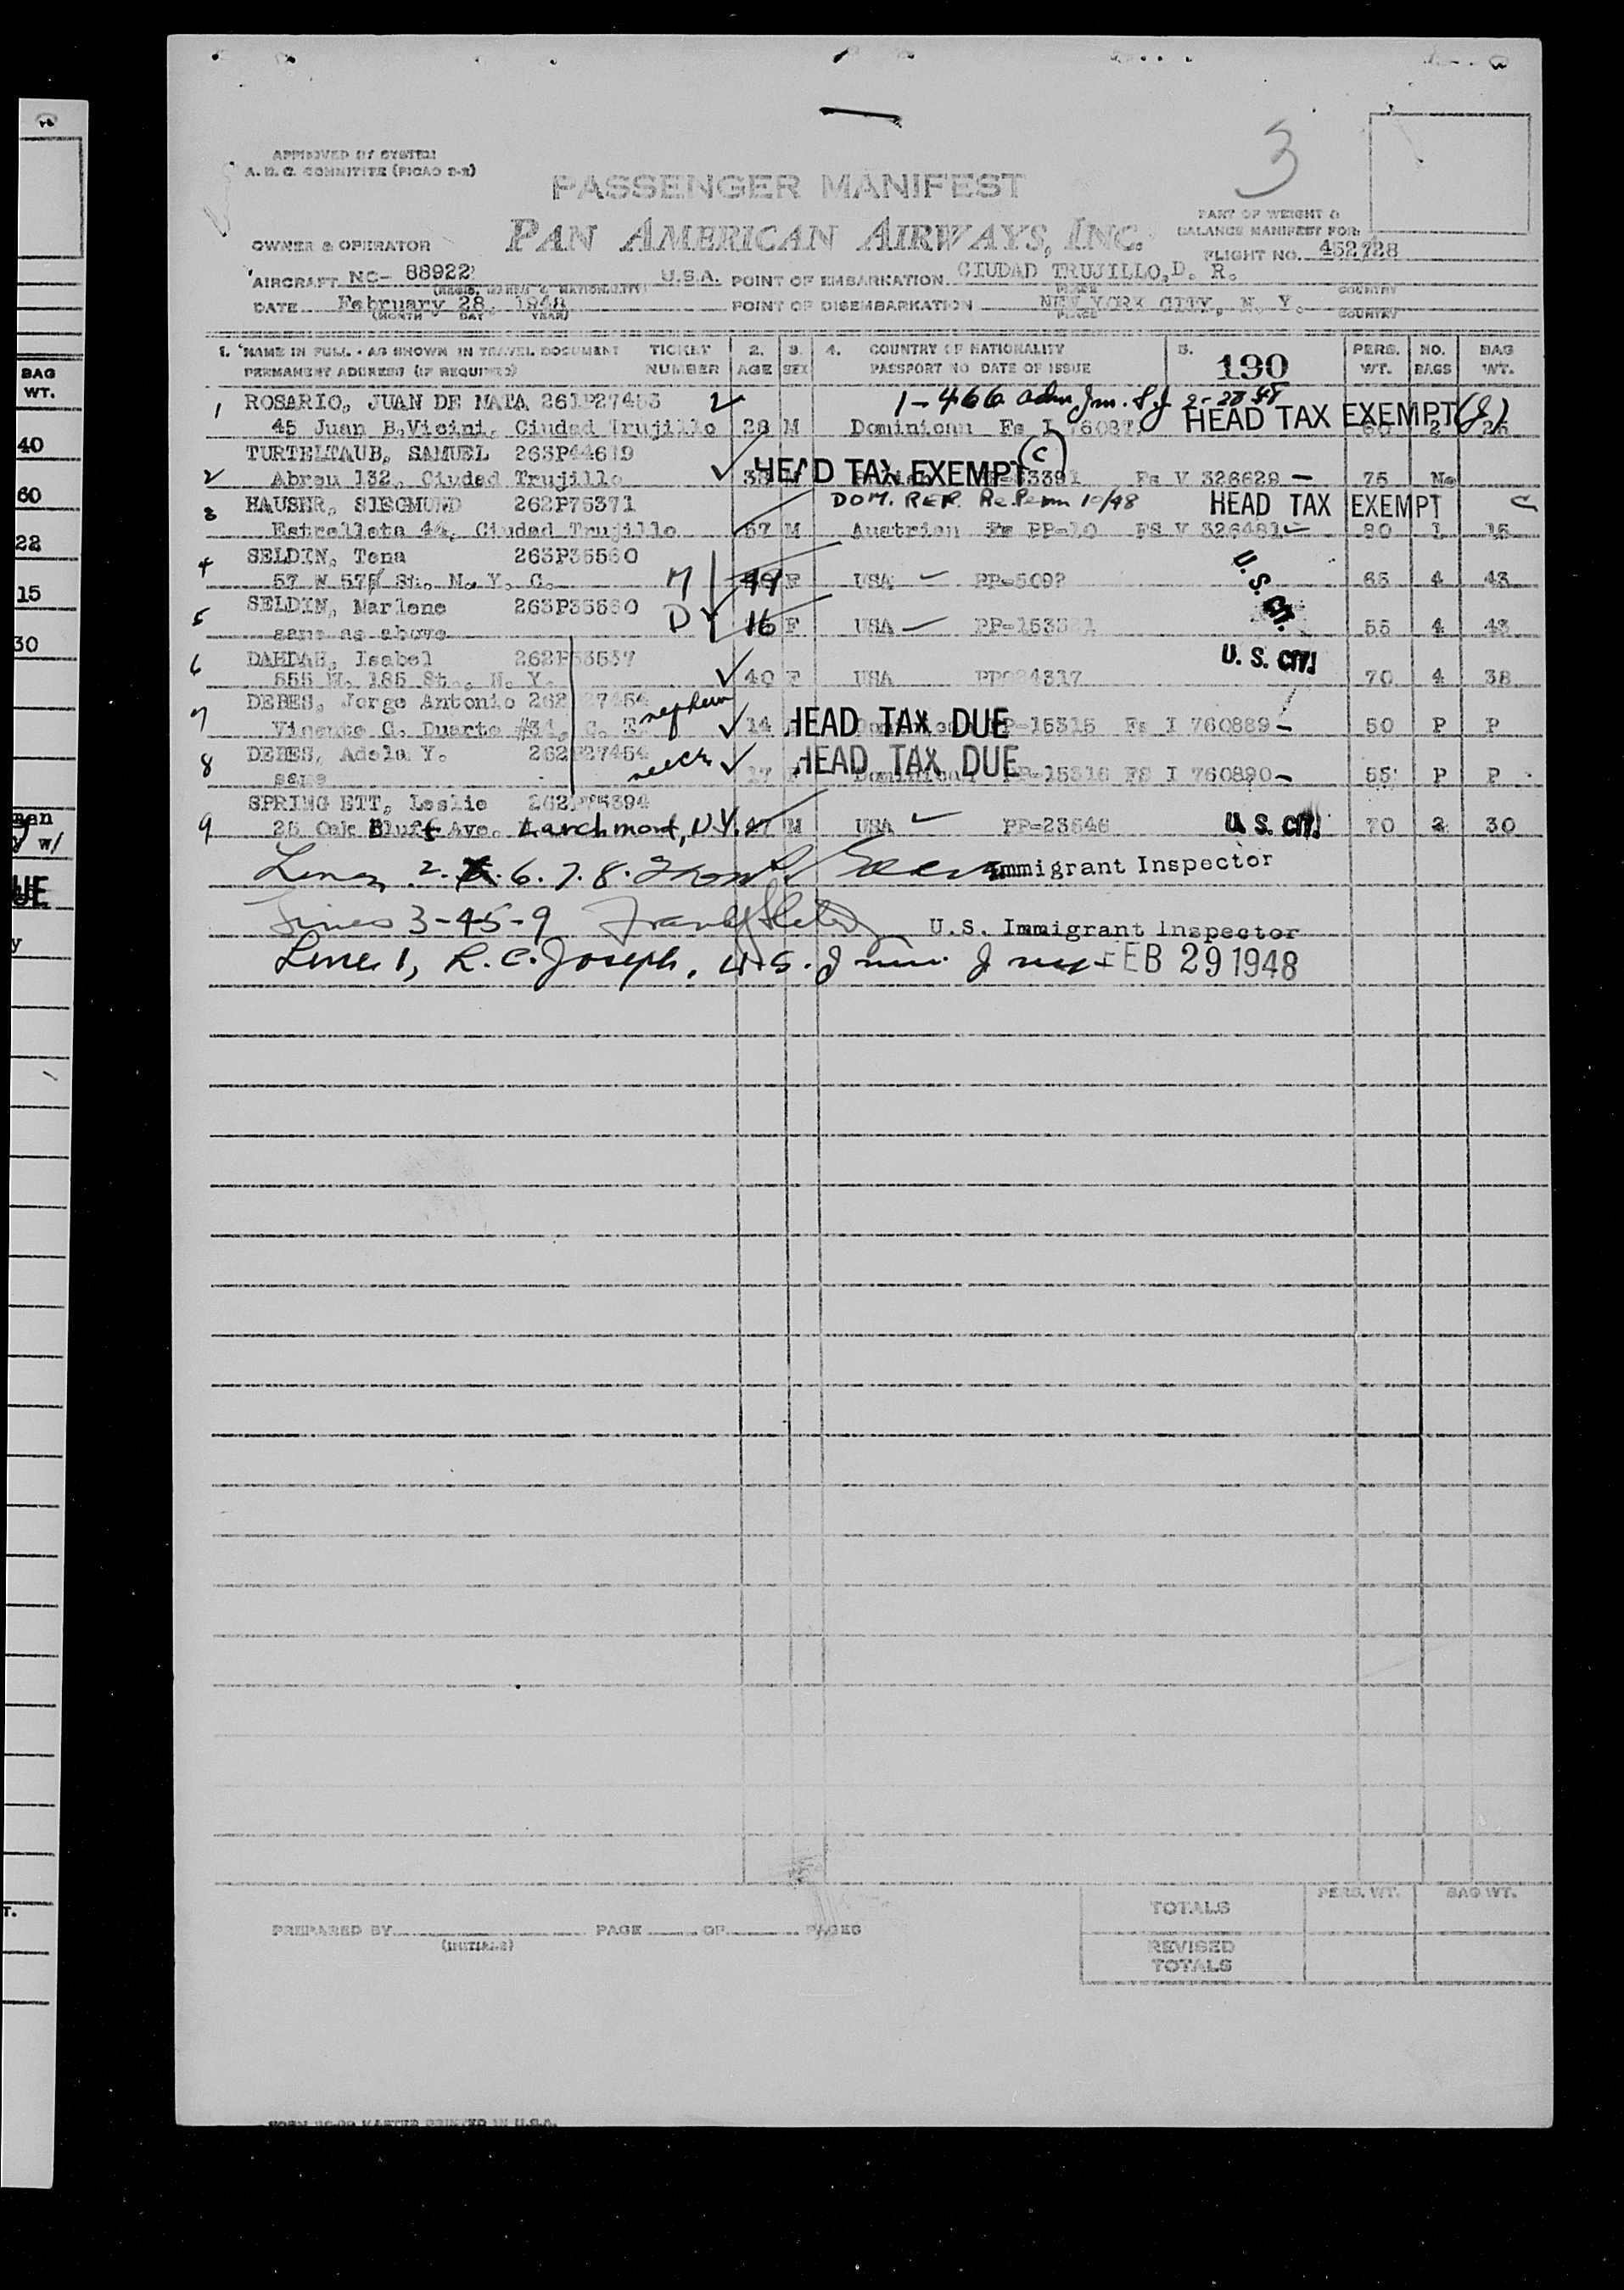 APPROVED BY SYSTEM
A. D. C. COMMITTEE (PICAO 2-2)
3
PASSENGER MANIFEST
PAN AMERICAN AIRWAYS, INC.
PART OF WEIGHT &
BALANCE MANIFEST FOR
OWNER & OPERATOR
FLIGHT NO. 452/728
AIRCRAFT NC- 88922 U.S.A. POINT OF EMBARKATION CIUDAD TRUJILLO, D. R.
(REGIS. MARKS & NATIONALITY) PLACE COUNTRY
DATE February 28, 1948 POINT OF DISEMBARKATION NEW YORK CITY, N. Y.
(MONTH DAY YEAR) PLACE COUNTRY
1. NAME IN FULL - AS SHOWN IN TRAVEL DOCUMENT TICKET 2. 3. 4. COUNTRY OF NATIONALITY 5. 190 PERS. NO. BAG
PERMANENT ADDRESS (IF REQUIRED) NUMBER AGE SEX PASSPORT NO DATE OF ISSUE WT. BAGS WT.
1 ROSARIO, JUAN DE MATA 261P27453 1-466 adm Jm. S J 2-28 48
45 Juan B. Vicini, Ciudad Trujillo 28 M Dominican HEAD TAX EXEMPT (J) 2
TURTELTAUB, SAMUEL 263P44619
2 Abreu 132, Ciudad Trujillo HEAD TAX EXEMPT (C) Fs V 328629 - 75 No
3 HAUSER, SIEGMUND 262P75371 DOM. REP. Re. Perm 10/48 HEAD TAX EXEMPT C
Estrelleta 44, Ciudad Trujillo 57 M Austrian PP-10 FS V 326481 80 1 15
4 SELDIN, Tena 263P35560
57 W 57 St., N. Y. C. M F USA PP-5092 U. S. CIT. 65 4 43
5 SELDIN, Marlene 263P35560
same as above D 16 F USA 55 4 43
6 DAHDAH, Isabel U. S. CIT.
555 W. 185 St., N. Y. 40 F USA 70 4 38
7 DEBES, Jorge Antonio 262 27454 nephew
Vicente C. Duarte #34, C. T. 14 HEAD TAX DUE PP-15315 Fs I 760889 - 50 P P
8 DEBES, Adela Y. 262P27454 neice
same 17 F HEAD TAX DUE PP-15316 FS I 760890 - 55 P P
SPRINGETT, Leslie
9 25 Oak Bluff Ave. Larchmont, N.Y. 47 M USA PP-23546 U. S. CIT. 70 2 30
Lines 2. 6. 7. 8. Immigrant Inspector
Lines 3-45-9 U.S. Immigrant Inspector
Line 1, R. C. Joseph, U.S. Imm. FEB 29 1948
TOTALS PERS. WT. BAG WT.
PREPARED BY PAGE OF PAGES
(INITIALS)
REVISED
TOTALS
BAG
WT.
40
60
22
15
30
man
w/
UE
y
T.